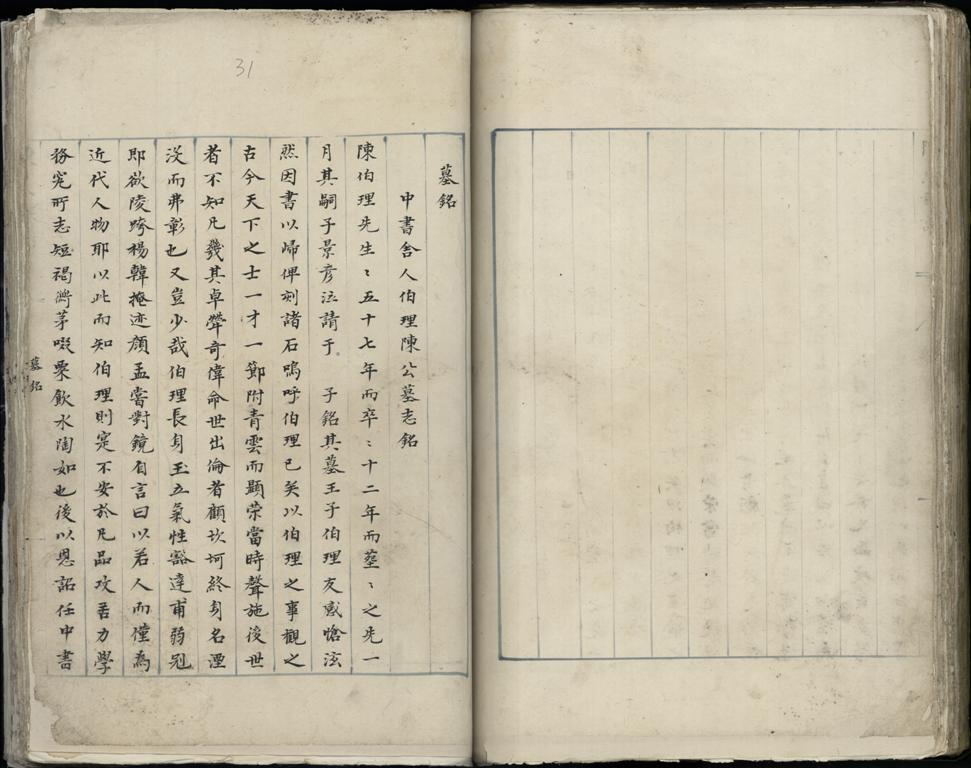 31
墓銘
中書舍人伯理陳公墓志銘
陳伯理先生〻五十七年而卒〻十二年而塟〻之先一
月其嗣子景彥泣請于 予銘其墓王子伯理友感愴泫
然因書以歸俾刻諸石嗚呼伯理已矣以伯理之事觀之
古今天下之士一才一節附青雲而顯荣當時聲施後世
者不知凡幾其卓犖奇偉命世出倫者顧坎坷終身名湮
沒而弗彰也又豈少哉伯理長身玉立氣性豁達甫弱冠
即欲陵跨楊韓掩迹顏孟嘗對鏡自言曰以若人而僅為
近代人物耶以此而知伯理則寔不安於凡品攻苦力學
務究所志短褐茅啜粟飲水陶如也後以恩詔任中書
墓銘